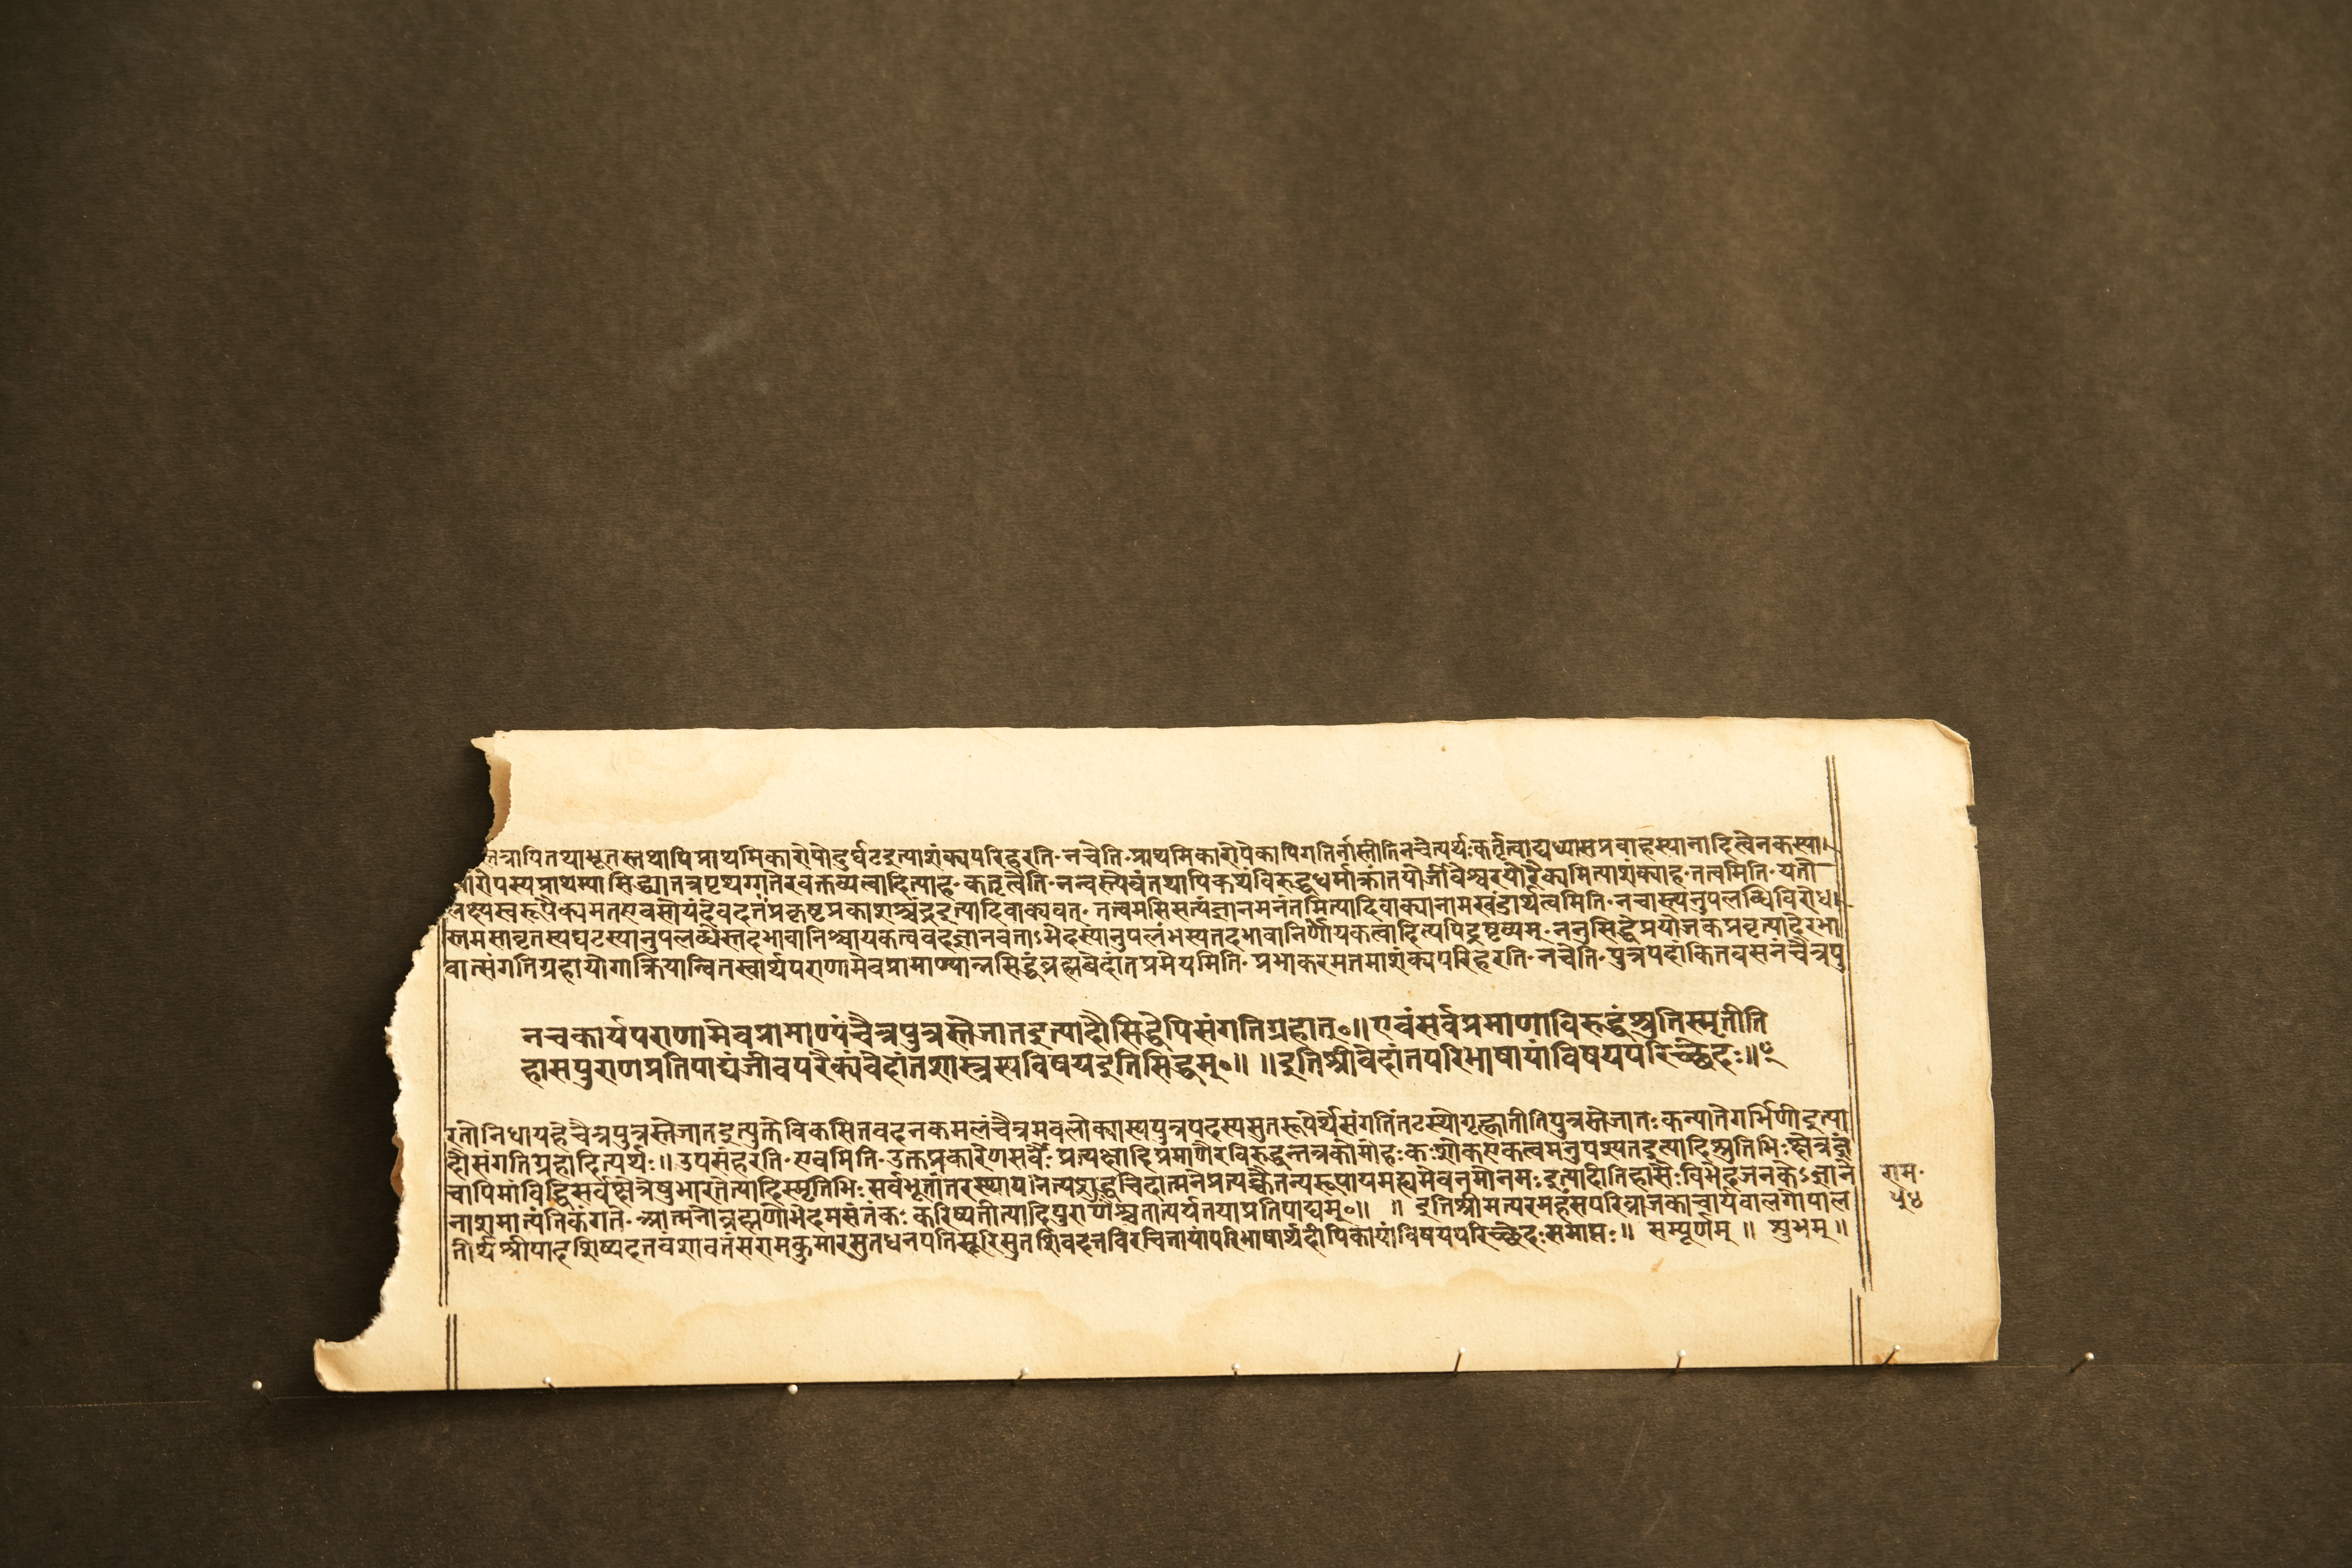 तत्रापितथाभूतस्तथापिप्राथमिकारोपोदुर्घटइत्याशंक्यपरिहरति-नचेति-प्राथमिकारोपेकापिगतिर्नास्तीतिनचेत्यर्थःकर्तृत्वाद्यध्यासप्रवाहस्यानादित्वेनकस्या
रोपस्यप्राथम्यासिद्ध्यातत्रपृथग्गतेरवक्तव्यत्वादित्याह-कर्तृत्वेति-नन्वस्त्वेवंतथापिकथंविरुद्धधर्माक्रांतयोर्जीवेश्वरयोरैक्यमित्याशंक्याह-तत्वमिति-यतो
लक्ष्यस्वरूपैक्यमतएवसोयंदेवदत्तःप्रकृष्टप्रकाशश्चंद्रइत्यादिवाक्यवत्-तत्त्वमसिसत्यंज्ञानमनंतमित्यादिवाक्यानामखंडार्थत्वमिति-नचास्त्यनुपलब्धिविरोधः
स्तमसावृतस्यघटस्यानुपलब्धेस्तदभावानिश्चायकत्ववदज्ञानवताऽभेदस्यानुपलंभस्यतदभावानिर्णायकत्वादित्यपिद्रष्टव्यम्-ननुसिद्धेप्रयोजकप्रवृत्यादेरभा
वात्संगतिग्रहायोगात्क्रियान्वितस्वार्थपराणामेवप्रामाण्यान्नसिद्धंब्रह्मवेदांतप्रमेयमिति-प्रभाकरमतमाशंक्यपरिहरति-नचेति-पुत्रपदांकितवसनंचैत्रपु
नचकार्यपराणामेवप्रामाण्यंचैत्रपुत्रस्तेजातइत्यादौसिद्धेपिसंगतिग्रहात्॰॥एवंसर्वप्रमाणाविरुद्धंश्रुतिस्मृतीति
हासपुराणप्रतिपाद्यंजीवपरैक्यंवेदांतशास्त्रस्यविषयइतिसिद्धम्॰॥ ॥इतिश्रीवेदांतपरिभाषायांविषयपरिच्छेदः॥
रतोनिधायहेचैत्रपुत्रस्तेजातइत्युक्तेविकसितवदनकमलंचैत्रमवलोक्यास्यपुत्रपदस्यसुतरूपेर्थेसंगतिंतटस्थोगृह्णातीतिपुत्रस्तेजातःकन्यातेगर्भिणीइत्या
दौसंगतिग्रहादित्यर्थः॥उपसंहरति-एवमिति-उक्तप्रकारेणसर्वैःप्रत्यक्षादिप्रमाणैरविरुद्धन्तत्रकोमोहःकःशोकएकत्वमनुपश्यतइत्यादिश्रुतिभिःक्षेत्रज्ञं
चापिमांविद्धिसर्वक्षेत्रेषुभारतेत्यादिस्मृतिभिःसर्वभूतांतरस्थायनित्यशुद्धचिदात्मनेप्रत्यक्चैतन्यरूपायमह्यमेवनमोनमःइत्यादीतिहासैःविभेदजनकेऽज्ञाने
नाशमात्यंतिकंगते-आत्मनोब्रह्मणोभेदमसंतंकःकरिष्यतीत्यादिपुराणैश्चतात्पर्यतयाप्रतिपाद्यम्॰॥ ॥ इतिश्रीमत्परमहंसपरिव्राजकाचार्यबालगोपाल
तीर्थश्रीपादशिष्यदत्तवंशावतंसरामकुमारसुतधनपतिसूरिसुतशिवदत्तविरचितायांपरिभाषार्थदीपिकायांविषयपरिच्छेदःसमाप्तः॥ सम्पूर्णम् ॥ शुभम् ॥
राम॰
५४